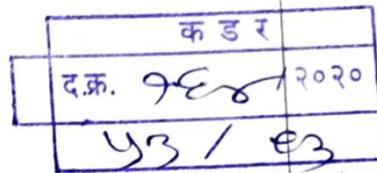 क ड र
द.क्र. १६४/२०२०
५३ / ९३